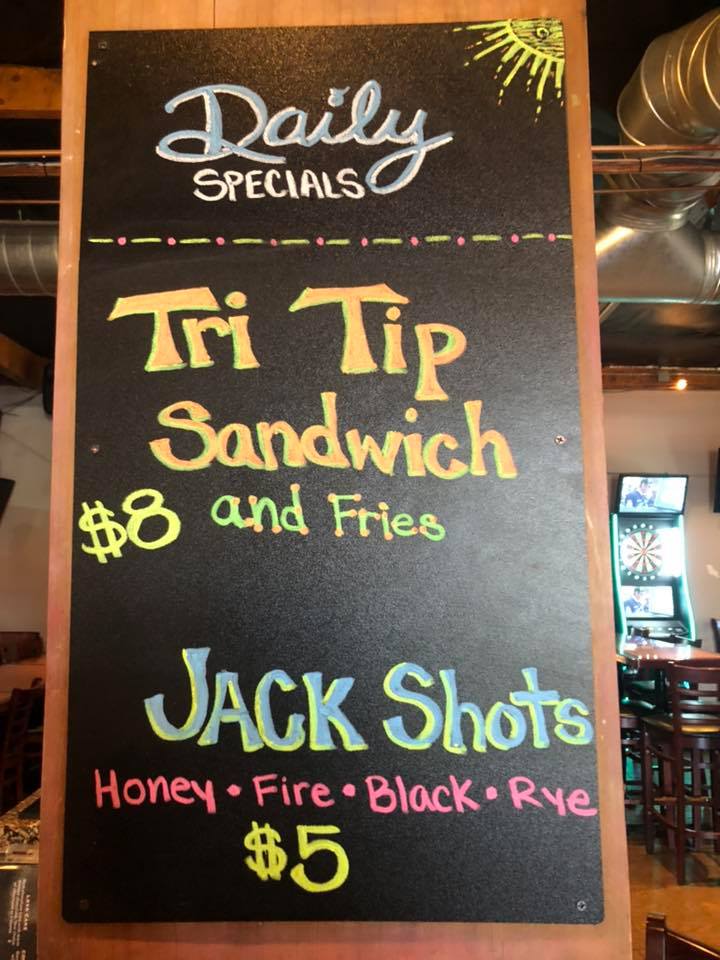 Daily
SPECIALS
Tri Tip
Sandwich
$8 and Fries
JACK Shots
Honey • Fire • Black • Rye
$5